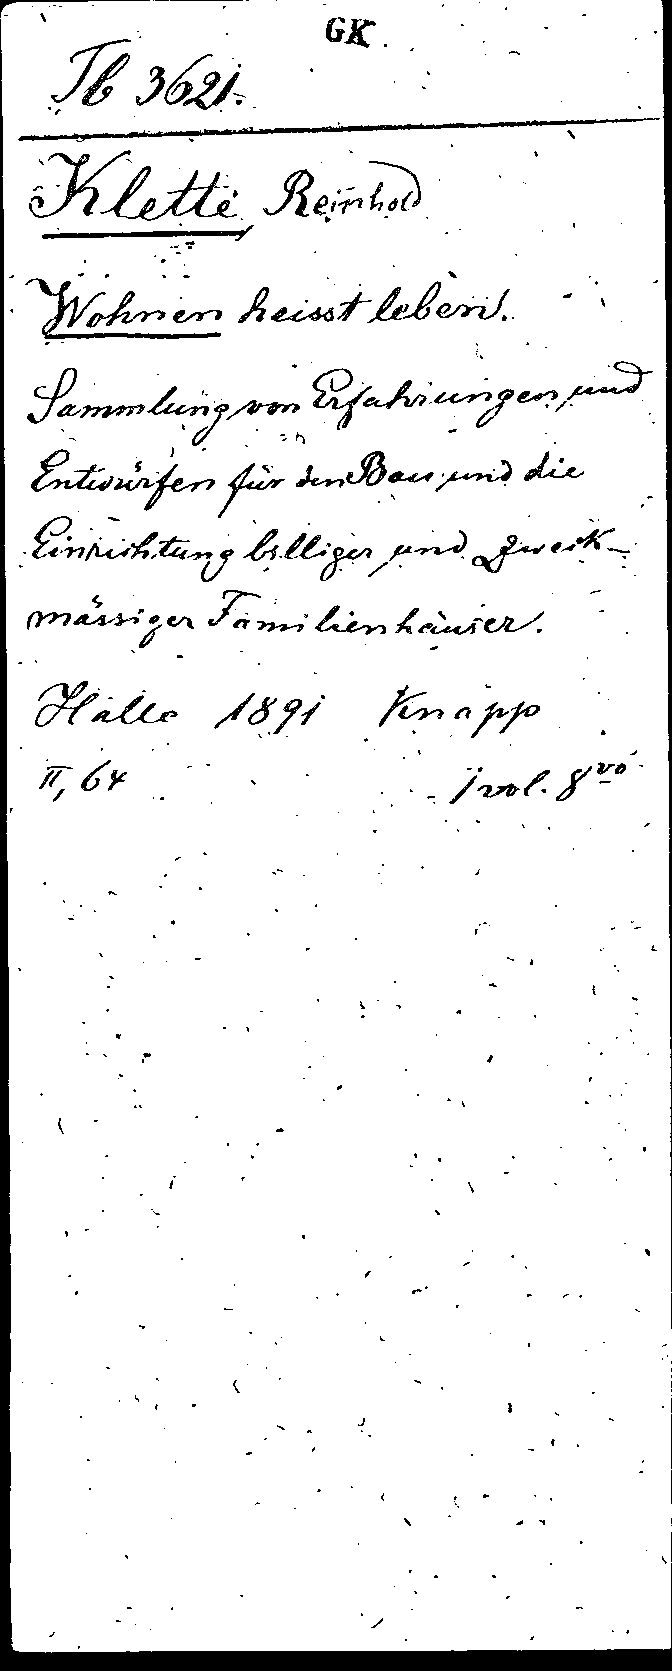 GK
Tb 3621.
Klette, Reinhold
Wohnen heisst leben.
Sammlung von Erfahrungen und
Entwürfen für den Bau und die
Einrichtung billiger und zweck-
mässiger Familienhäuser.
Halle 1891 Knapp
II, 64 1 vol. 8vo